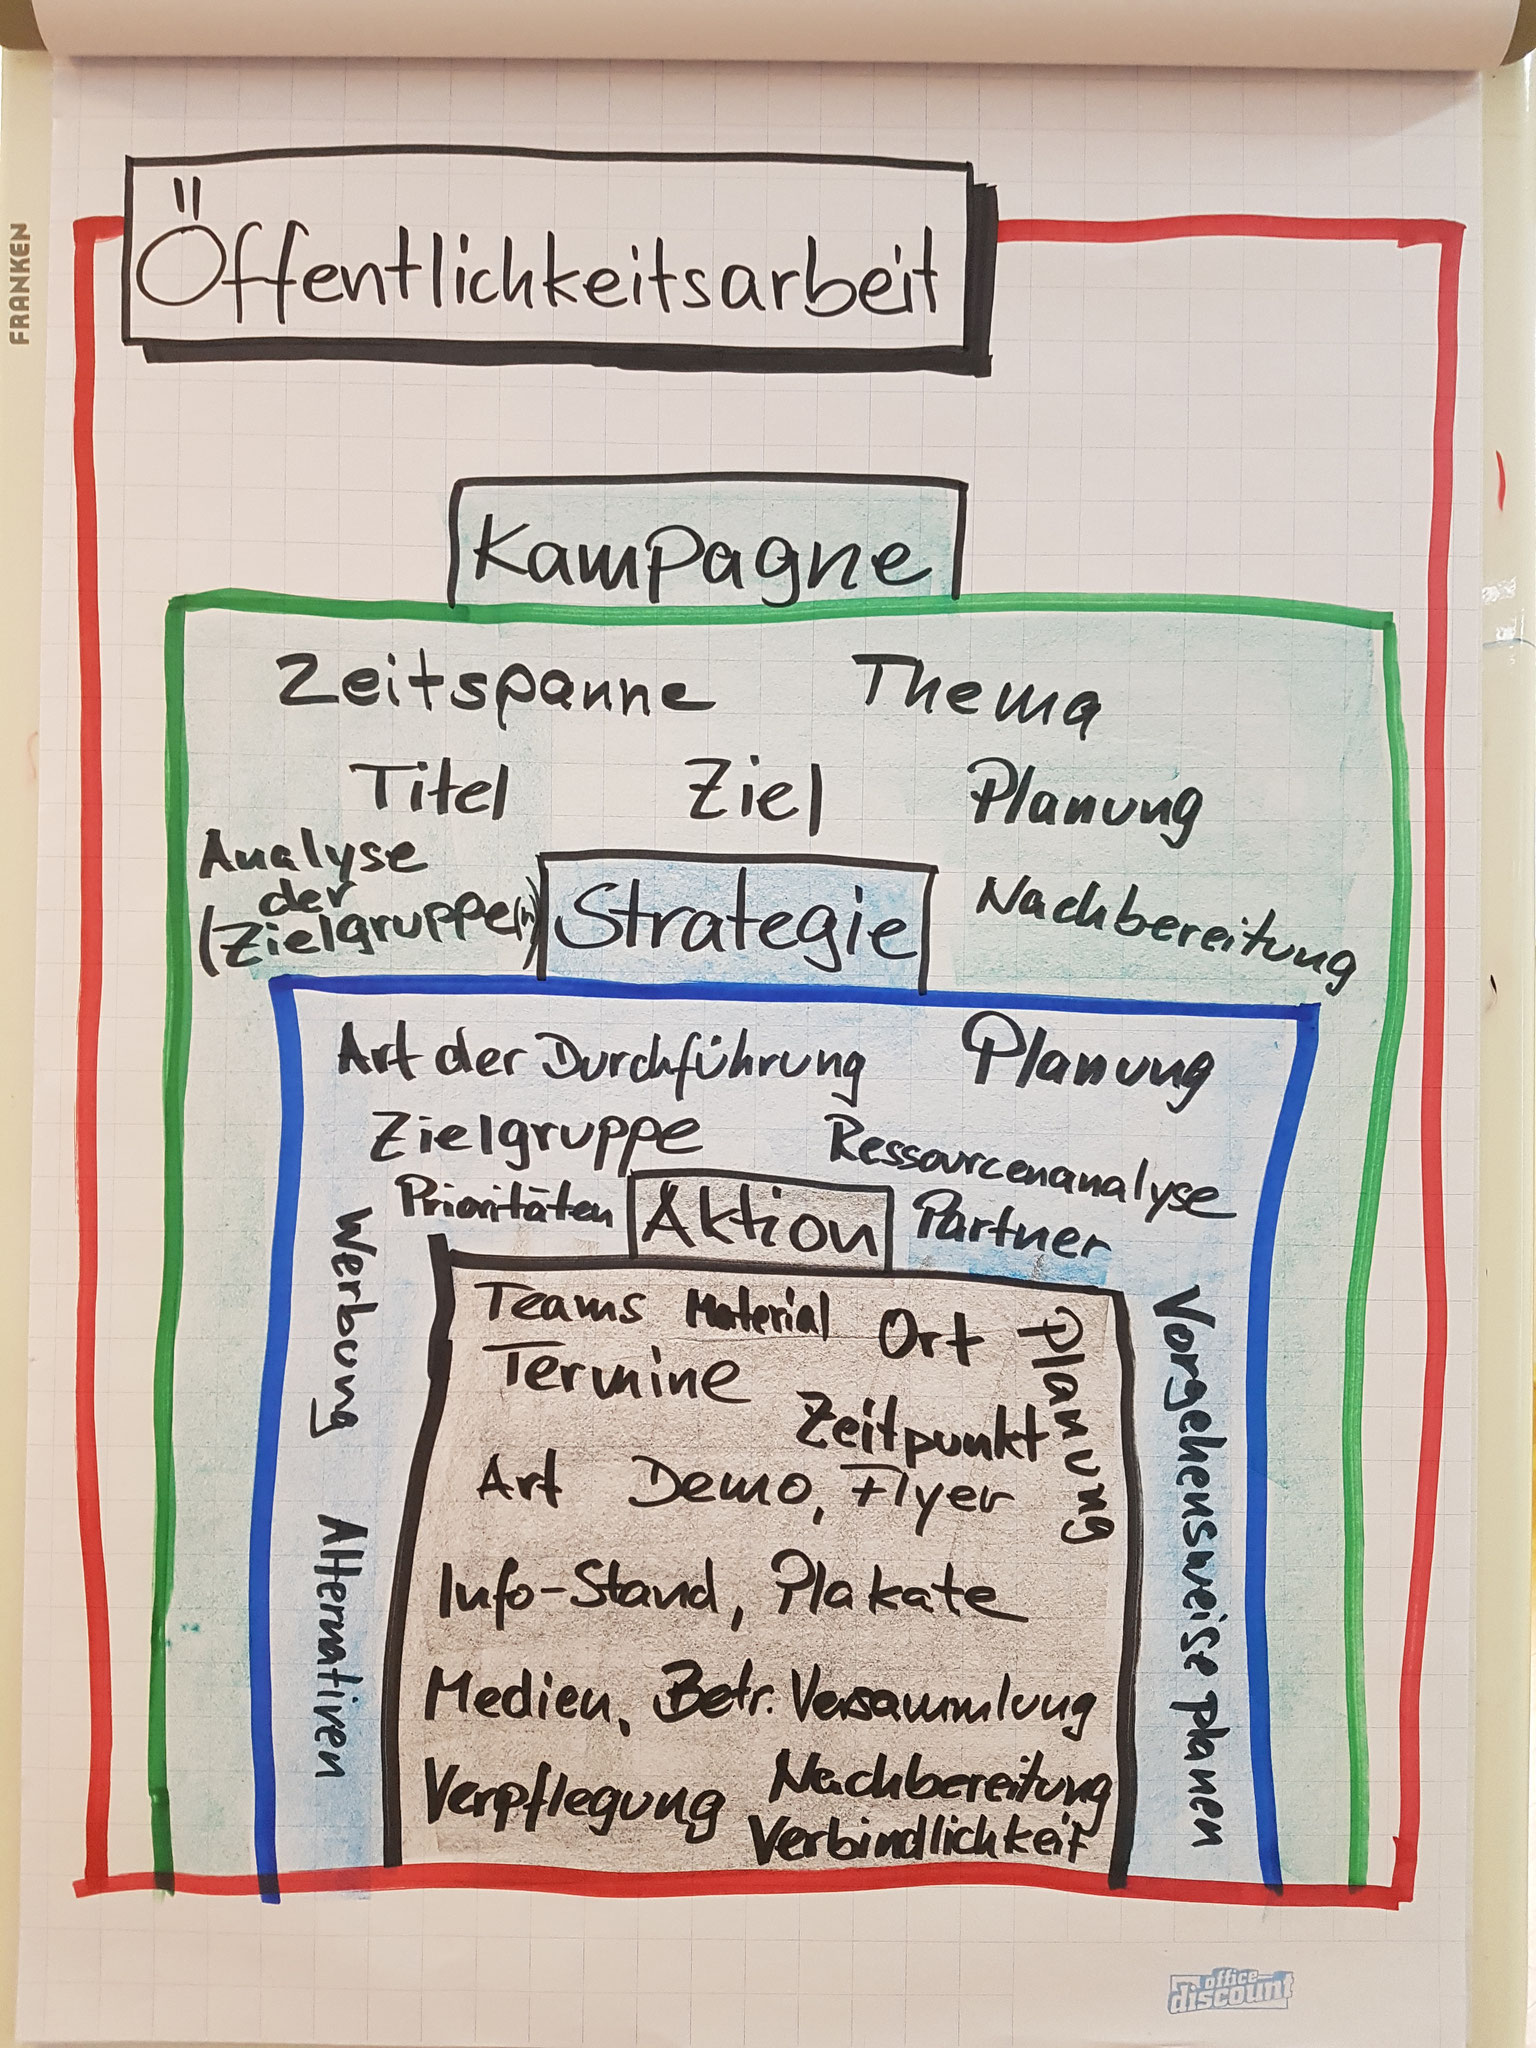 FRANKEN
Öffentlichkeitsarbeit
Kampagne
Zeitspanne Thema
Titel Ziel Planung
Analyse
der
(Zielgruppe(n))
Nachbereitung
Strategie
Art der Durchführung Planung
Zielgruppe Ressourcenanalyse
Prioritäten Partner
Werbung
Alternativen
Vorgehensweise planen
Aktion
Teams Material Ort
Planung
Termine
Zeitpunkt
Art Demo, Flyer
Info-Stand, Plakate
Medien, Betr. Versammlung
Verpflegung Nachbereitung
Verbindlichkeit
office
discount